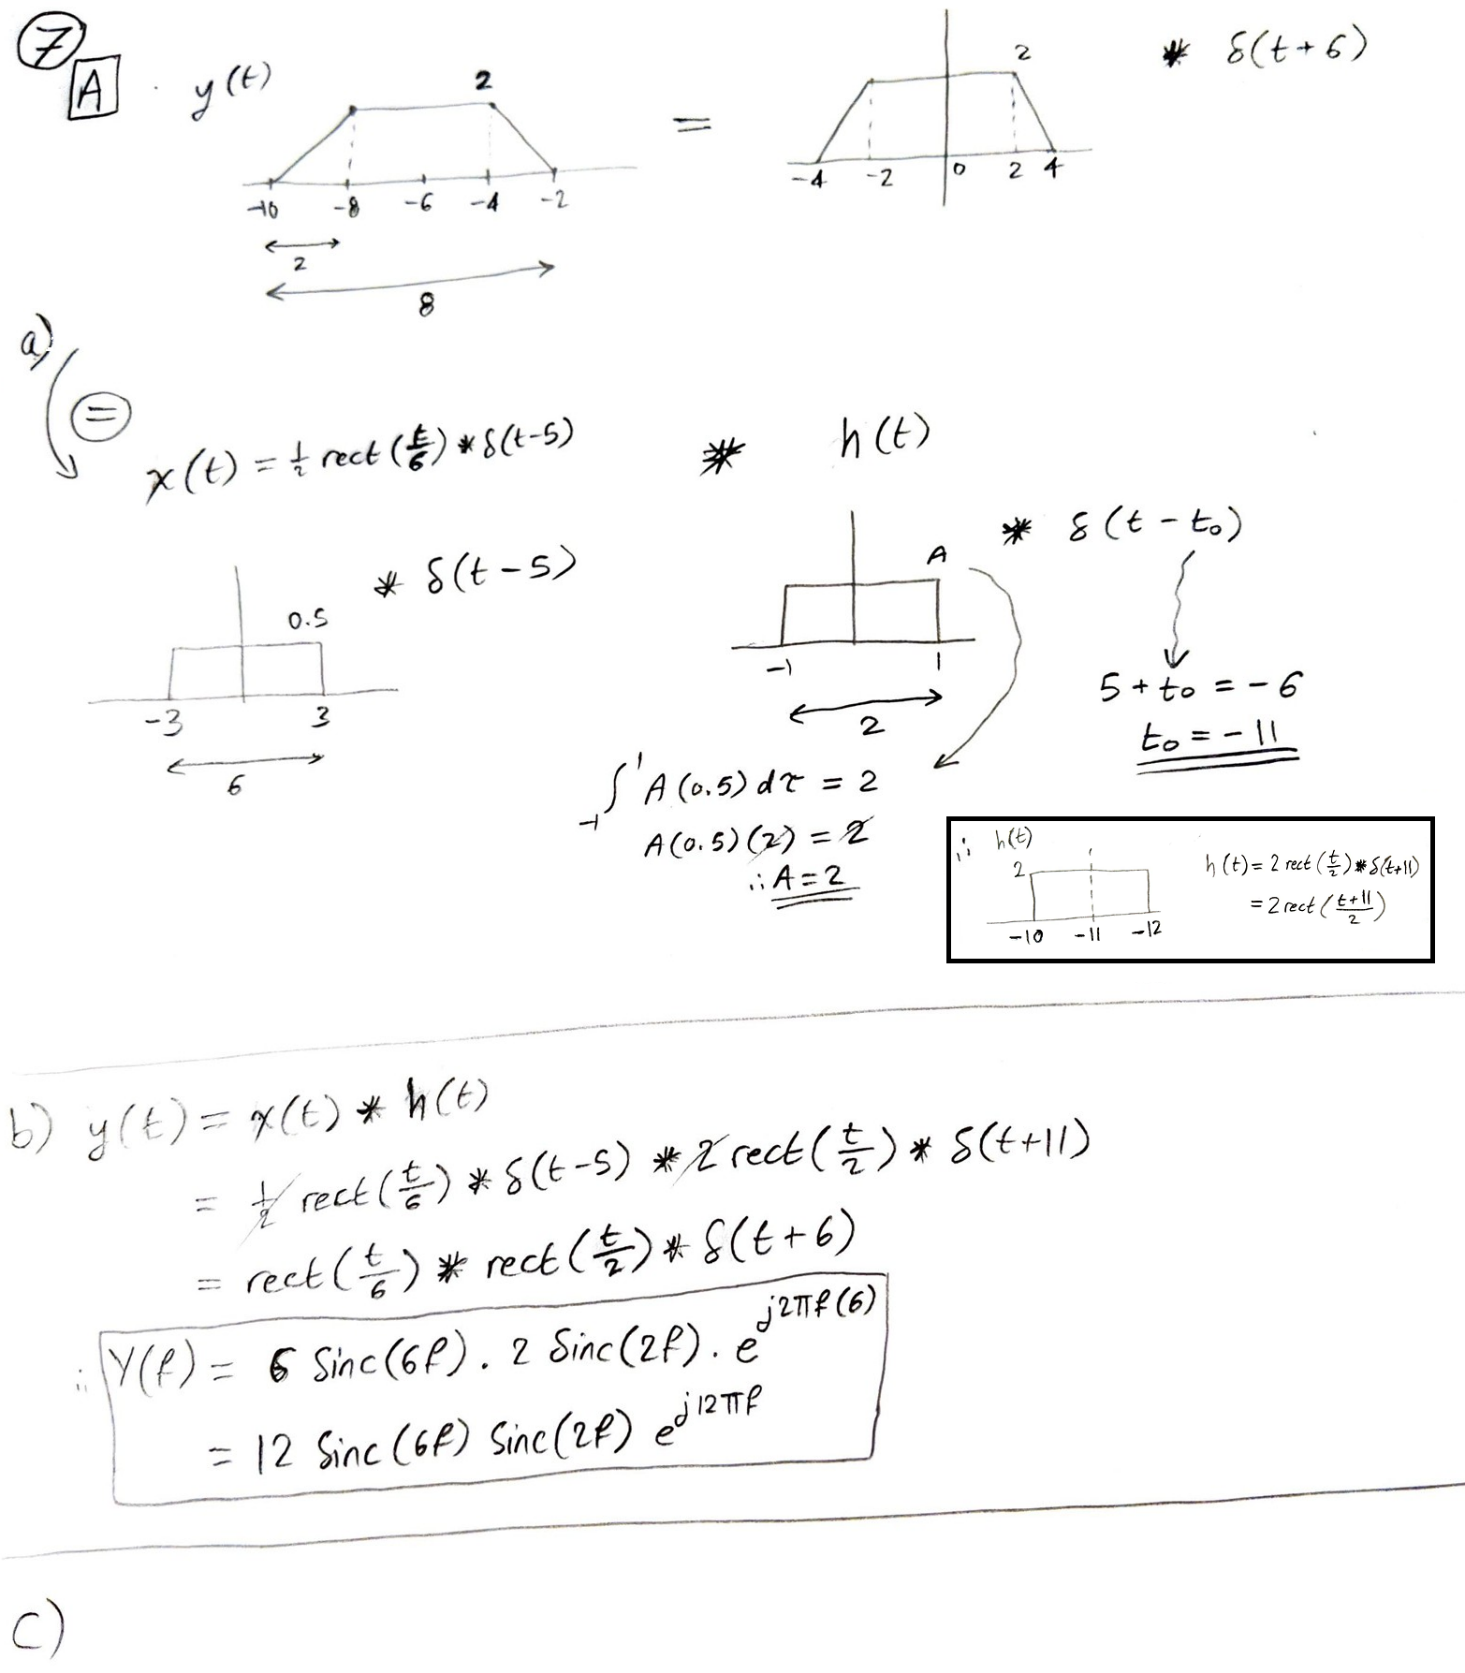 7
A
y(t)
2
-10 -8 -6 -4 -2
2
8
=
2
-4 -2 0 2 4
* δ(t+6)
a)
=
x(t) = 1/2 rect(t/6) * δ(t-5)
*
h(t)
0.5
* δ(t-5)
-3 3
6
A
* δ(t-t₀)
-1 1
2
5+t₀ = -6
t₀ = -11
∫₋₁¹ A(0.5)dτ = 2
A(0.5)(2) = 2
∴ A=2
∴ h(t)
2
-10 -11 -12
h(t) = 2 rect(t/2) * δ(t+11)
= 2 rect((t+11)/2)
b) y(t) = x(t) * h(t)
= 1/2 rect(t/6) * δ(t-5) * 2 rect(t/2) * δ(t+11)
= rect(t/6) * rect(t/2) * δ(t+6)
∴ Y(f) = 6 Sinc(6f) . 2 Sinc(2f) . e^{j2πf(6)}
= 12 Sinc(6f) Sinc(2f) e^{j12πf}
c)